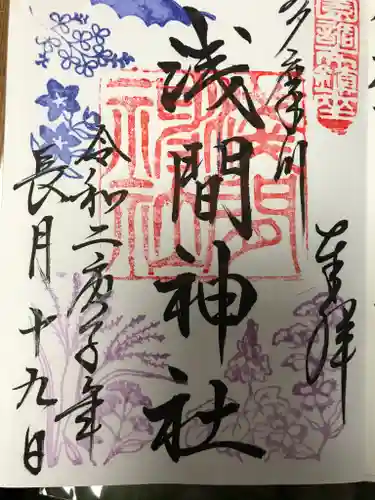 奉拝
多摩川
浅間神社
令和二庚子年
長月十九日